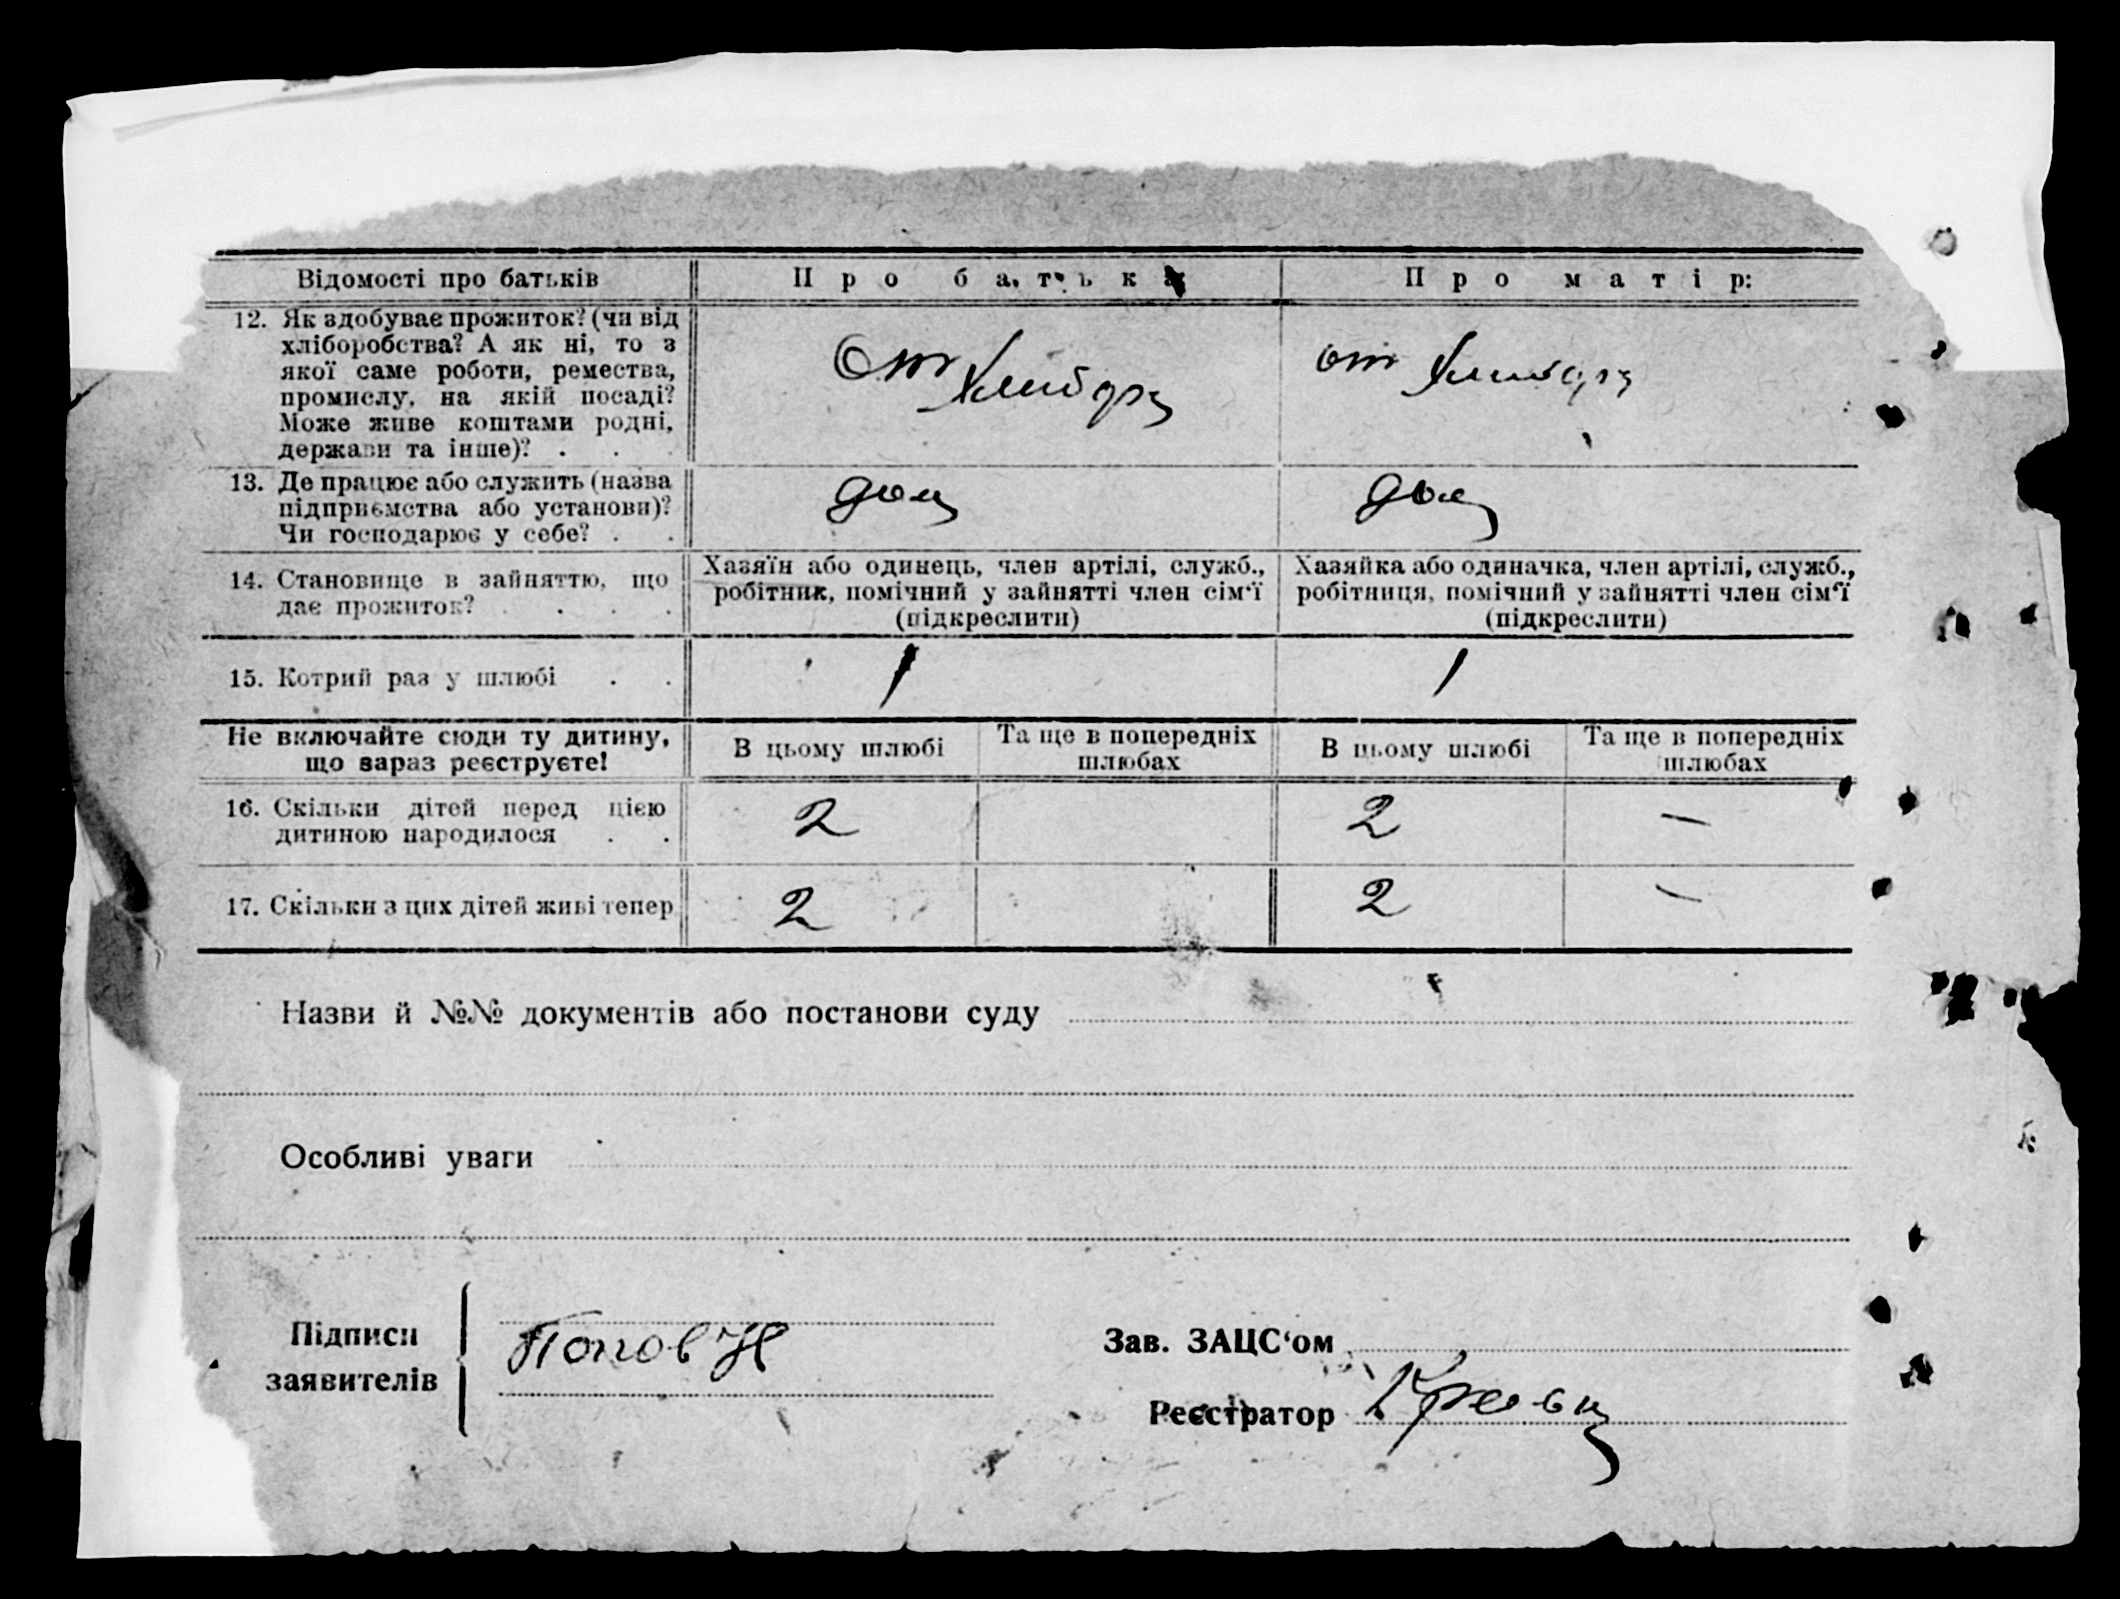 Відомості про батьків
Про батька:
Про матір:
12. Як здобуває прожиток? (чи від
хліборобства? А як ні, то з
якої саме роботи, ремества,
промислу, на якій посаді?
Може живе коштами родні,
держави та інше)? . .
От
от
13. Де працює або служить (назва
підприємства або установи)?
Чи господарює у себе? . .
дом
дом
14. Становище в зайняттю, що
дає прожиток? . . . .
Хазяїн або одинець, член артілі, служб.,
робітник, помічний у зайнятті член сім'ї
(підкреслити)
Хазяйка або одиначка, член артілі, служб.,
робітниця, помічний у зайнятті член сім'ї
(підкреслити)
15. Котрий раз у шлюбі . .
1
1
Не включайте сюди ту дитину,
що зараз реєструєте!
В цьому шлюбі
Та ще в попередніх
шлюбах
В цьому шлюбі
Та ще в попередніх
шлюбах
16. Скільки дітей перед цією
дитиною народилося . .
2
2
—
17. Скільки з цих дітей живі тепер
2
2
—
Назви й №№ документів або постанови суду
Особливі уваги
Підписи
заявителів
Попов Н
Зав. ЗАЦС'ом
Реєстратор